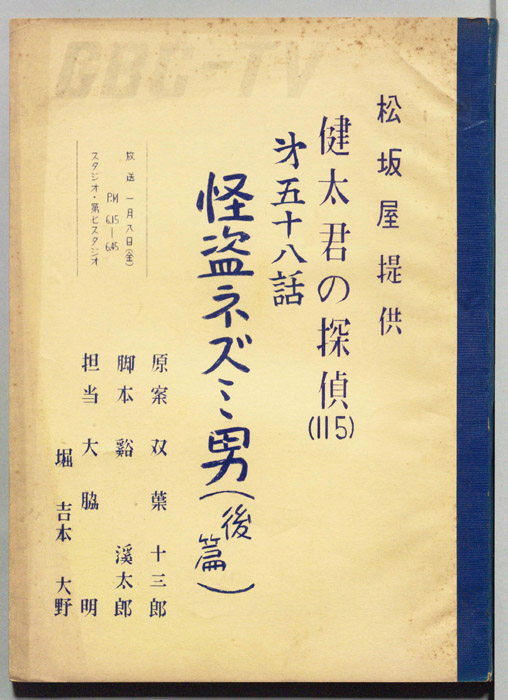 CBC-TV
松坂屋提供
健太君の探偵(115)
才五十八話
怪盗ネズミ男(後篇)
原案 双葉十三郎
脚本 谿 渓太郎
担当 大脇 明
堀 吉本 大野
放送 一月八日(金)
P.M 6.15―6.45
スタジオ・第七スタジオ